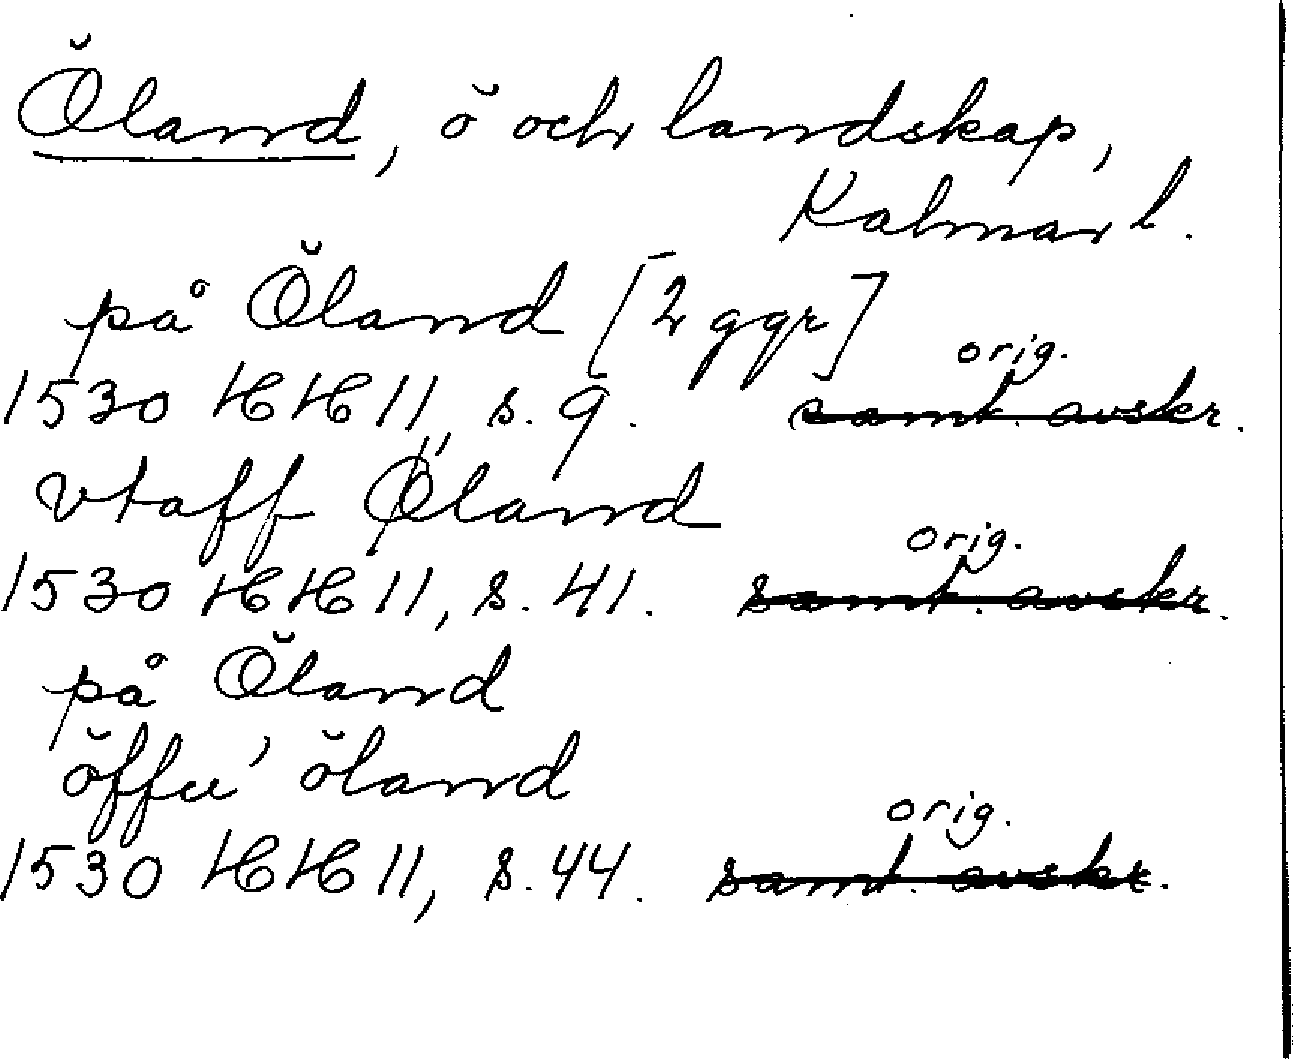 Öland, ö och landskap,
Kalmar l.
på Öland [2 ggr]
orig.
1530 HH 11, s. 9. samt. avskr.
vtaff Øland
orig.
1530 HH 11, s. 41. samt. avskr.
på Öland
öffu' öland
orig.
1530 HH 11, s. 44. samt. avskr.